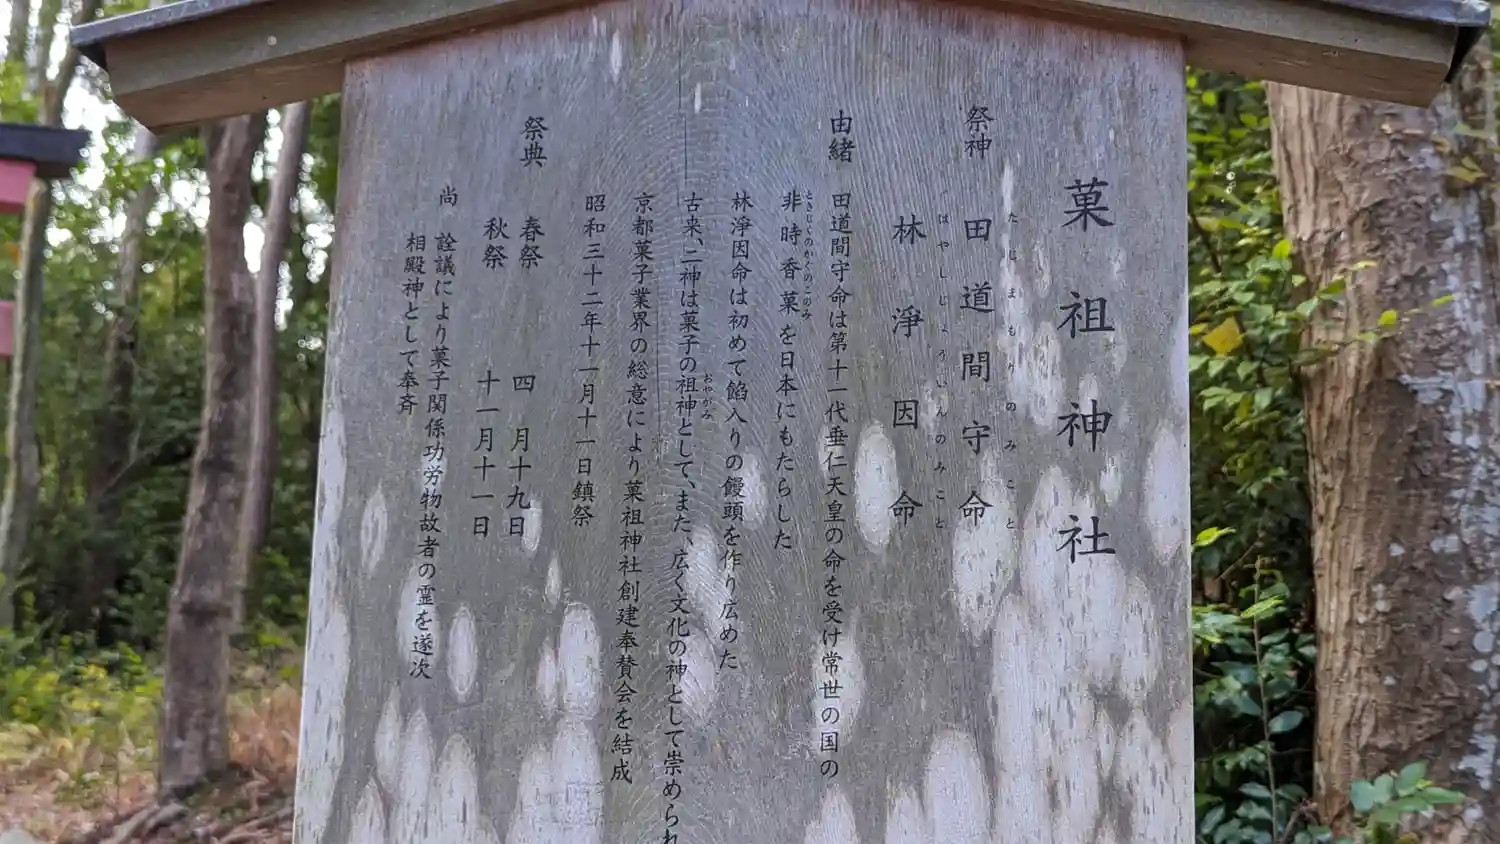 菓祖神社
祭神 田道間守命
たじまもりのみこと
林淨因命
はやしじょういんのみこと
由緒 田道間守命は第十一代垂仁天皇の命を受け常世の国の
非時香菓を日本にもたらした
ときじくのかぐのこのみ
林淨因命は初めて餡入りの饅頭を作り広めた
古来、二神は菓子の祖神として、また、広く文化の神として崇められ
おやがみ
京都菓子業界の総意により菓祖神社創建奉賛会を結成
昭和三十二年十一月十一日鎮祭
祭典 春祭 四月十九日
秋祭 十一月十一日
尚 詮議により菓子関係功労物故者の霊を遂次
相殿神として奉斉